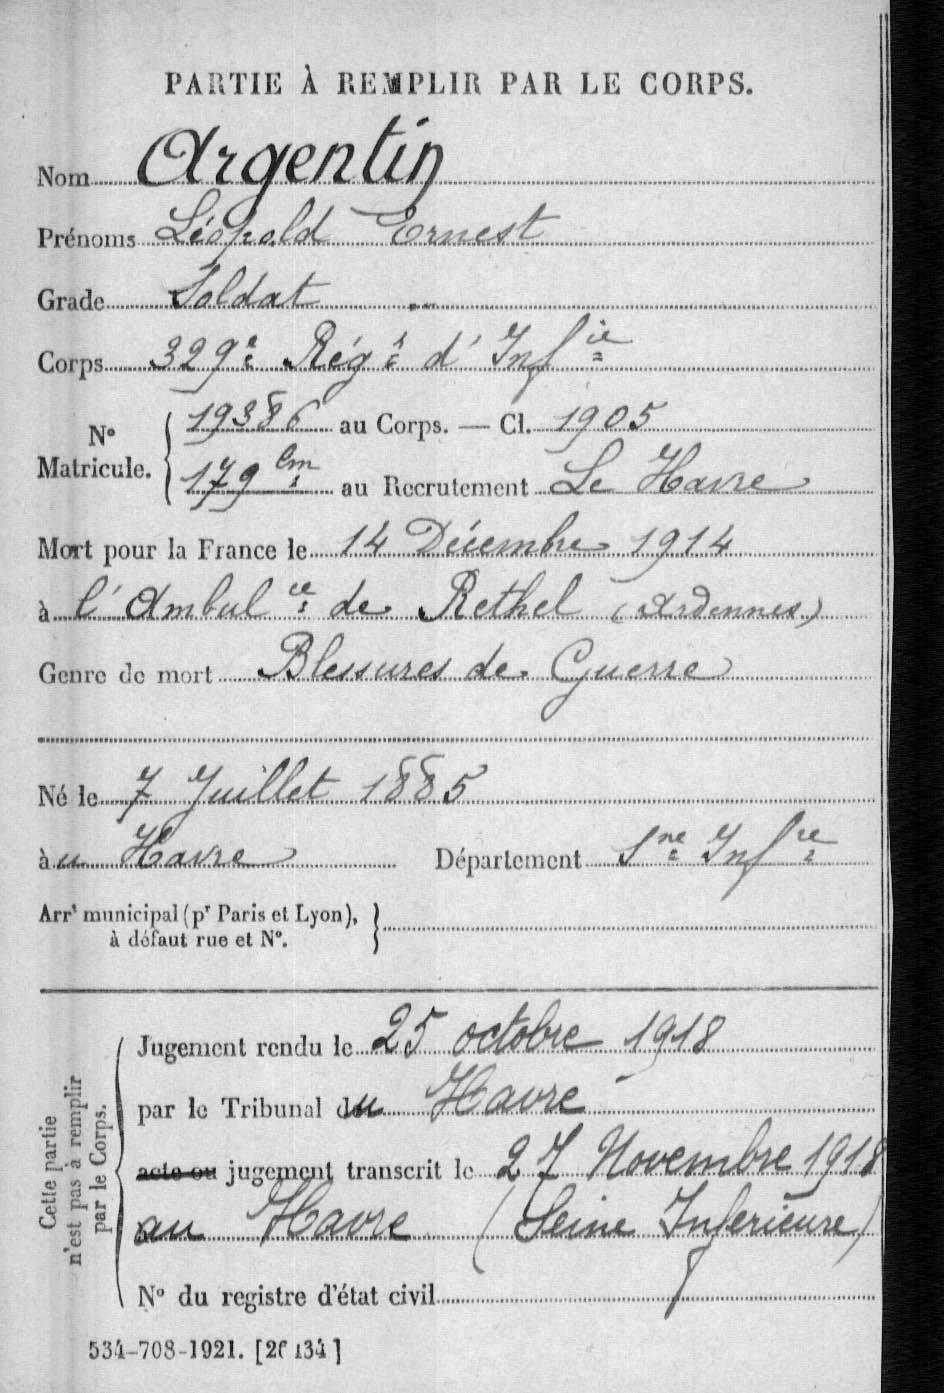 PARTIE À REMPLIR PAR LE CORPS.
Nom Argentin
Prénoms Léopold Ernest
Grade Soldat
Corps 329e Régt d'Infie
N° Matricule. 19386 au Corps. — Cl. 1905
179 Cm au Recrutement Le Havre
Mort pour la France le 14 Décembre 1914
à l'Ambulce de Rethel (Ardennes)
Genre de mort Blessures de Guerre
Né le 7 Juillet 1885
àu Havre Département Sne Infre
Arrt municipal (pr Paris et Lyon),
à défaut rue et N°.
Cette partie
n'est pas à remplir
par le Corps.
Jugement rendu le 25 octobre 1918
par le Tribunal du Havre
acte ou jugement transcrit le 27 Novembre 1918
au Havre (Seine Inferieure)
N° du registre d'état civil
534-708-1921. [26434]